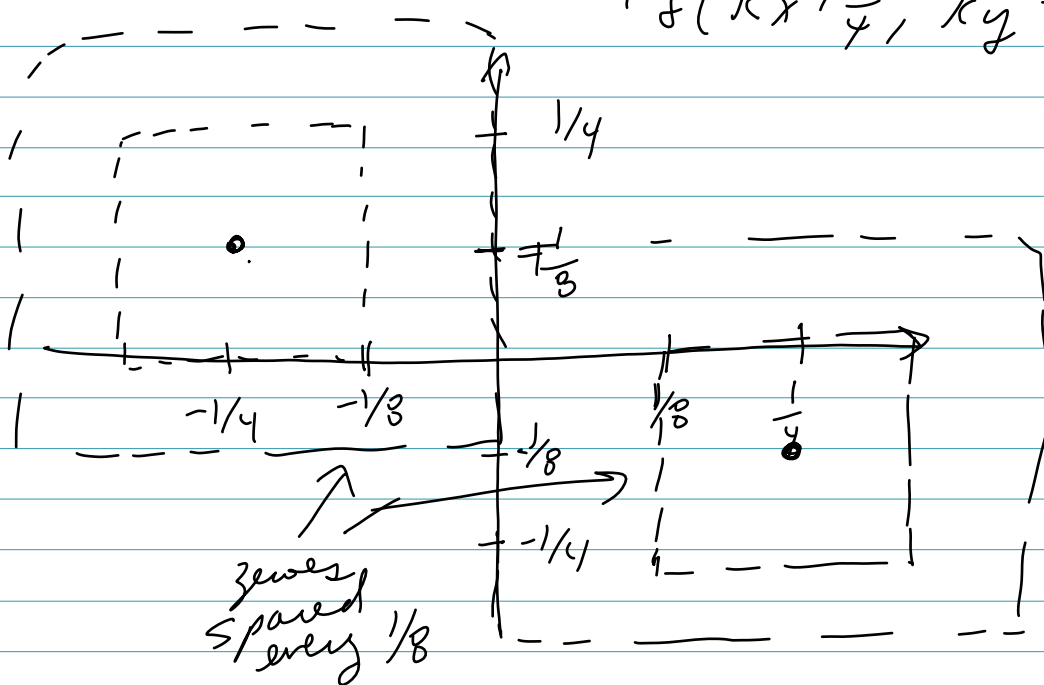 δ(kx + 1/4, ky
1/4
1/8
-1/4 -1/8 1/8 1/4
-1/8
-1/4
zeroes
spaced
every 1/8